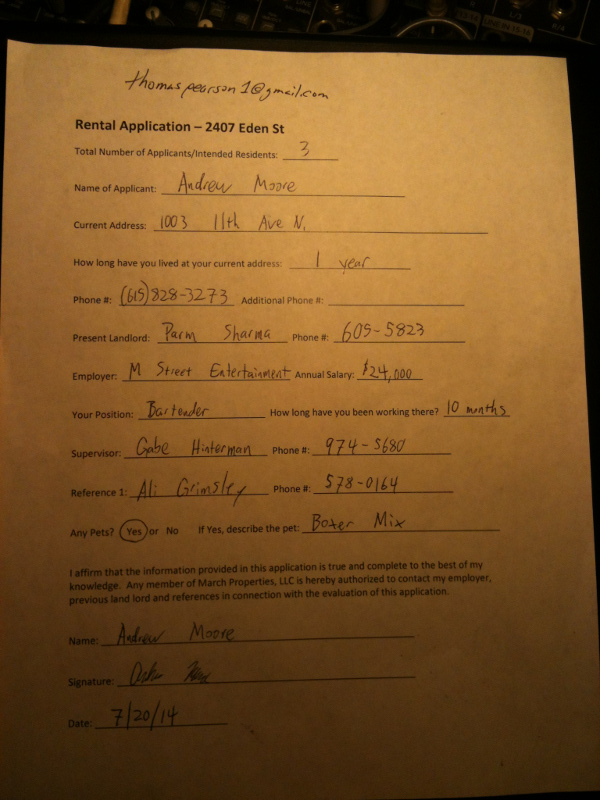 thomaspearson1@gmail.com
Rental Application – 2407 Eden St
Total Number of Applicants/Intended Residents: 3
Name of Applicant: Andrew Moore
Current Address: 1003 11th Ave N.
How long have you lived at your current address: 1 year
Phone #: (615)828-3273 Additional Phone #:
Present Landlord: Parm Sharma Phone #: 605-5823
Employer: M Street Entertainment Annual Salary: $24,000
Your Position: Bartender How long have you been working there? 10 months
Supervisor: Gabe Hinterman Phone #: 974-5680
Reference 1: Ali Grimsley Phone #: 578-0164
Any Pets? Yes or No If Yes, describe the pet: Boxer Mix
I affirm that the information provided in this application is true and complete to the best of my
knowledge. Any member of March Properties, LLC is hereby authorized to contact my employer,
previous land lord and references in connection with the evaluation of this application.
Name: Andrew Moore
Signature:
Date: 7/20/14